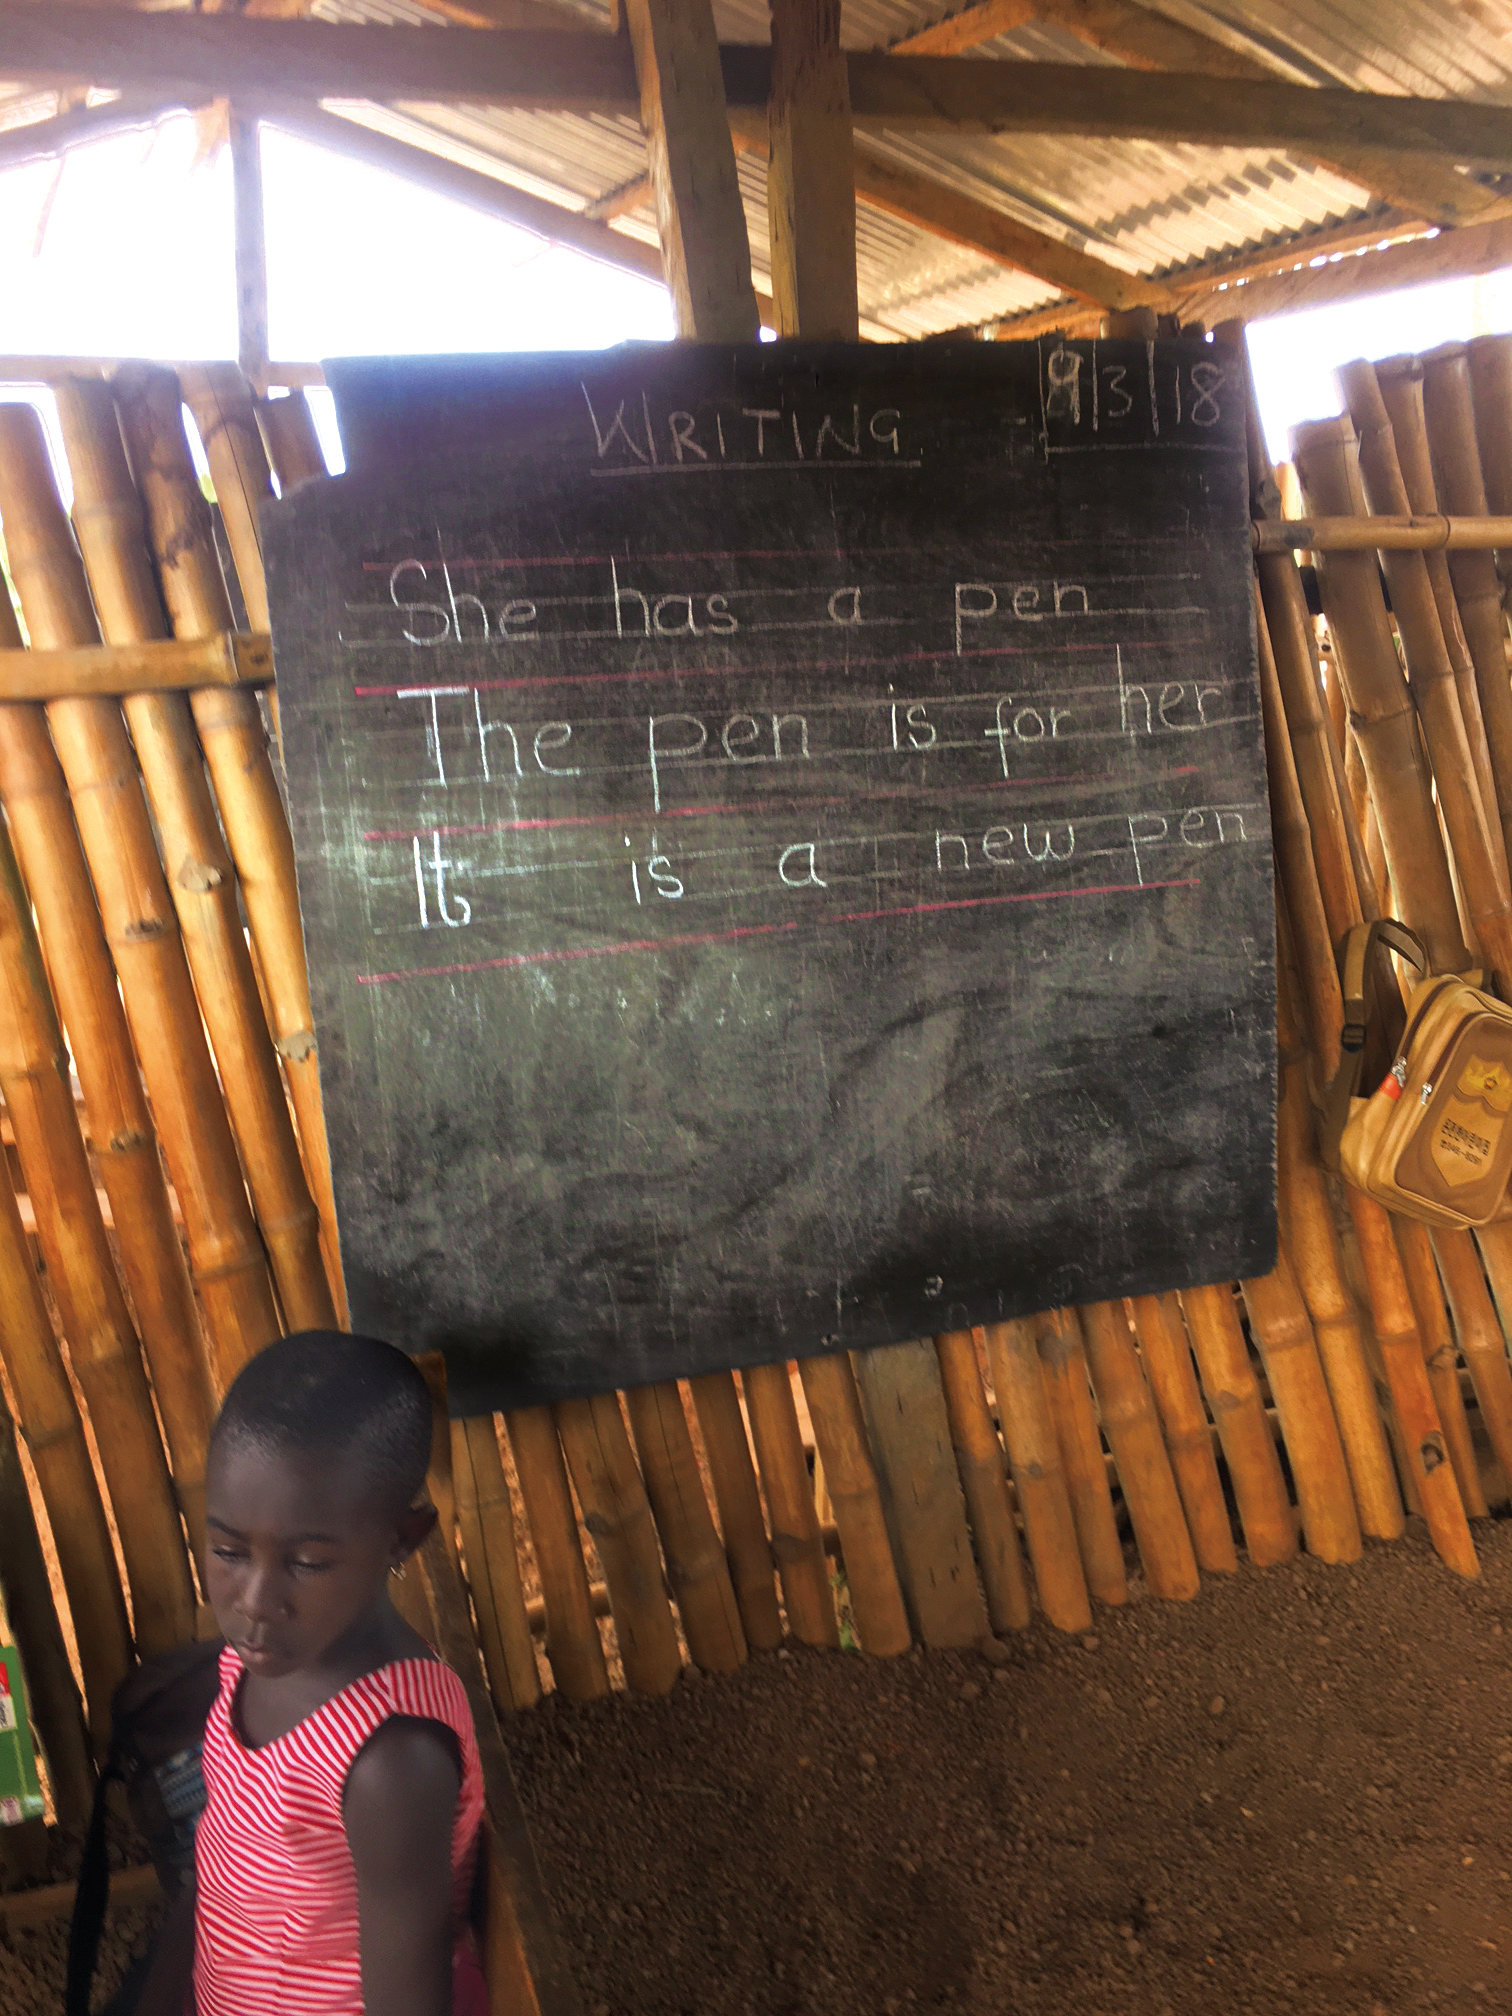 WRITING
9/3/18
She has a pen
The pen is for her
It is a new pen